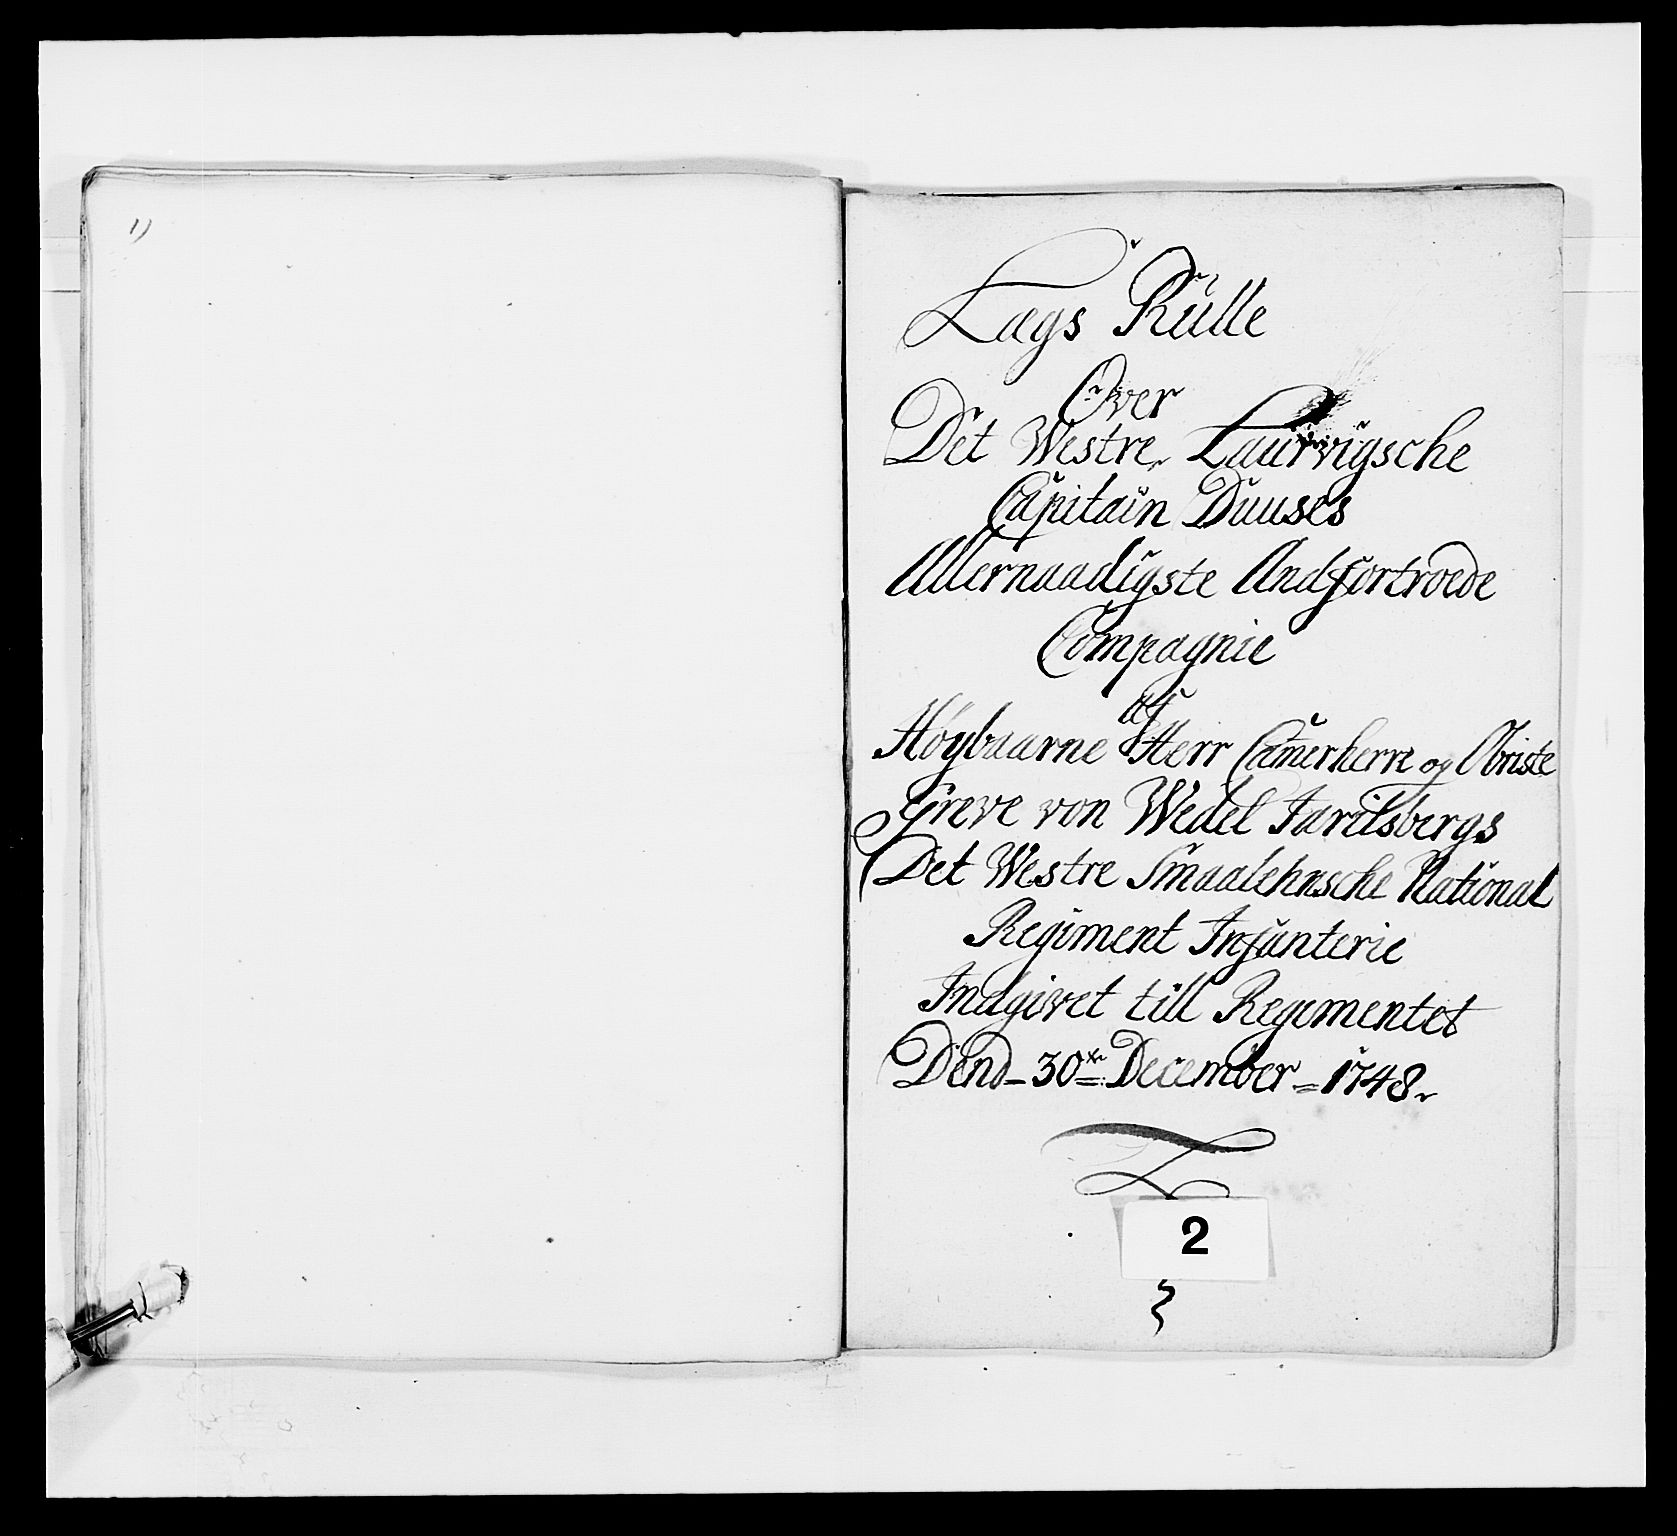 1)
Lægs Rulle
Over
Det Westre Laurvigsche
Capitain Duuses
Allernaadigste Andfortroede
Compagnie
af
Høybaarne Herr Camerherre og Obriste
Greve von Wedel Jarilsbergs
Det Westre Smaalehnsche National
Regiment Infanterie
Indgivet till Regimentet
Dend 30te December 1748
2